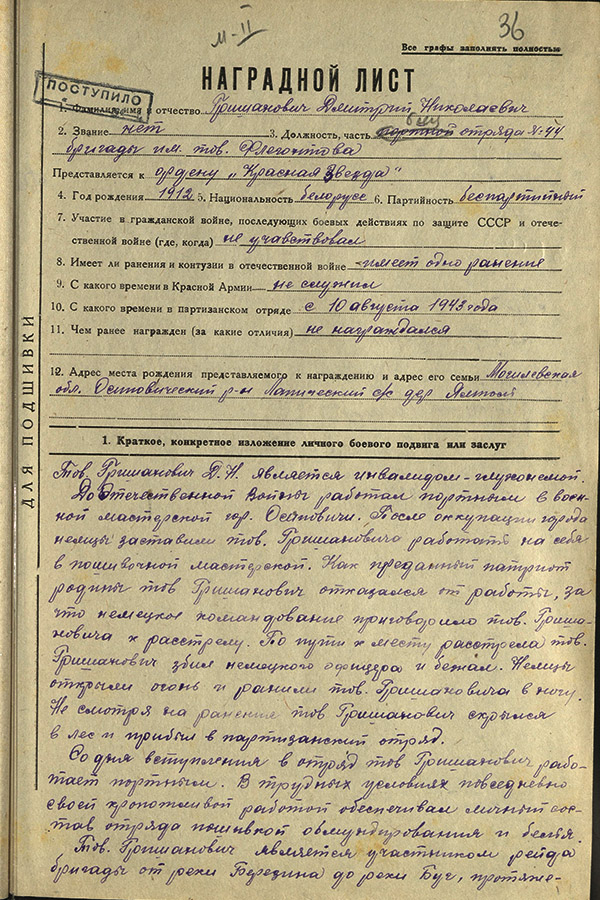 М-II
36
Все графы заполнять полностью
НАГРАДНОЙ ЛИСТ
ПОСТУПИЛО
1. Фамилия, имя и отчество Гришанович Дмитрий Николаевич
2. Звание нет 3. Должность, часть портной отряда №-44
бригады им. тов. Флегонтова
Представляется к ордену „Красная Звезда"
4. Год рождения 1912 5. Национальность белорусс 6. Партийность беспартийный
7. Участие в гражданской войне, последующих боевых действиях по защите СССР и отече-
ственной войне (где, когда) не учавствовал
8. Имеет ли ранения и контузии в отечественной войне -имеет одно ранение
9. С какого времени в Красной Армии не служил
10. С какого времени в партизанском отряде с 10 августа 1943 года
11. Чем ранее награжден (за какие отличия) не награждался
12. Адрес места рождения представляемого к награждению и адрес его семьи Могилевская
обл. Осиповический р-н Лапический с/с дер
ДЛЯ ПОДШИВКИ
1. Краткое, конкретное изложение личного боевого подвига или заслуг
Тов. Гришанович Д. Н. является инвалидом-глухонемой.
До Отечественной войны работал портным в воен-
ной мастерской гор. Осиповичи. После оккупации города
немцы заставили тов. Гришановича работать на себя
в пошивочной мастерской. Как преданный патриот
родины тов Гришанович отказался от работы, за
что немецкое командование приговорило тов. Гриша-
новича к расстрелу. По пути к месту расстрела тов.
Гришанович збил немецкого офицера и бежал. Немцы
открыли огонь и ранили тов. Гришановича в ногу.
Не смотря на ранение тов Гришанович скрылся
в лес и прибыл в партизанский отряд.
Со дня вступления в отряд тов Гришанович рабо-
тает портным. В трудных условиях повседневно
своей кропотливой работой обеспечивал личный сос-
тав отряда пошивкой обмундирования и белья.
Тов. Гришанович является участником рейда
бригады от реки Березина до реки Буг, протяже-